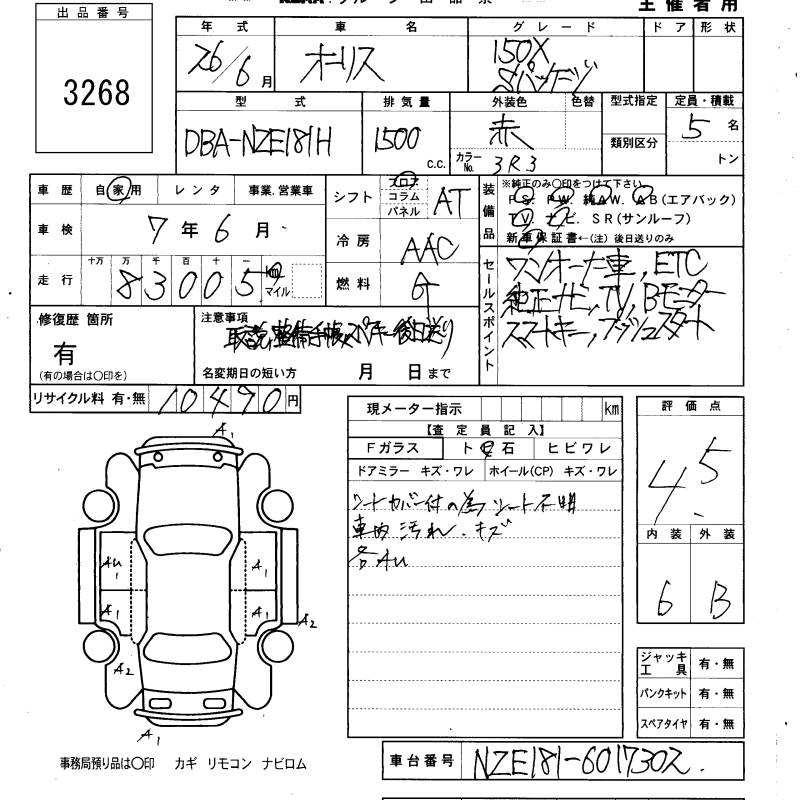 出品番号
3268
主催者用
年式 車名 グレード ドア 形状
26/6月 オーリス 150X
Sパッケージ
型式 排気量 外装色 色替 型式指定 定員・積載
DBA-NZE181H 1500 c.c. 赤 類別区分 5名
カラーNo. 3R3 トン
車歴 自家用 レンタ 事業.営業車
シフト フロア コラム パネル AT
装備品 ※純正のみ〇印をつけて下さい
PS. PW. 純AW. AB(エアバック)
TV. ナビ. SR(サンルーフ)
新車保証書←(注) 後日送りのみ
車検 7年6月
冷房 AAC
走行 十万 万 千 百 十 一
83005 km マイル
燃料 G
セールスポイント
ワンオーナー車, ETC
純正ナビ, TV, Bモニター
スマートキー, プッシュスタート
修復歴 箇所
有
(有の場合は〇印を)
注意事項
取説,整備手帳,スペアキー後日送り
名変期日の短い方 月 日まで
リサイクル料 有・無 10490円
現メーター指示 km
【査定員記入】
Fガラス ト飛石 ヒビワレ
ドアミラー キズ・ワレ ホイール(CP) キズ・ワレ
シートカバー付の為シート不明
車内汚れ.キズ
各AU
評価点
4.5
内装 外装
6 B
A1
AU1 A1
A1 A1 A2
A2
A1
ジャッキ工具 有・無
パンクキット 有・無
スペアタイヤ 有・無
事務局預り品は〇印 カギ リモコン ナビロム
車台番号 NZE181-6017302.